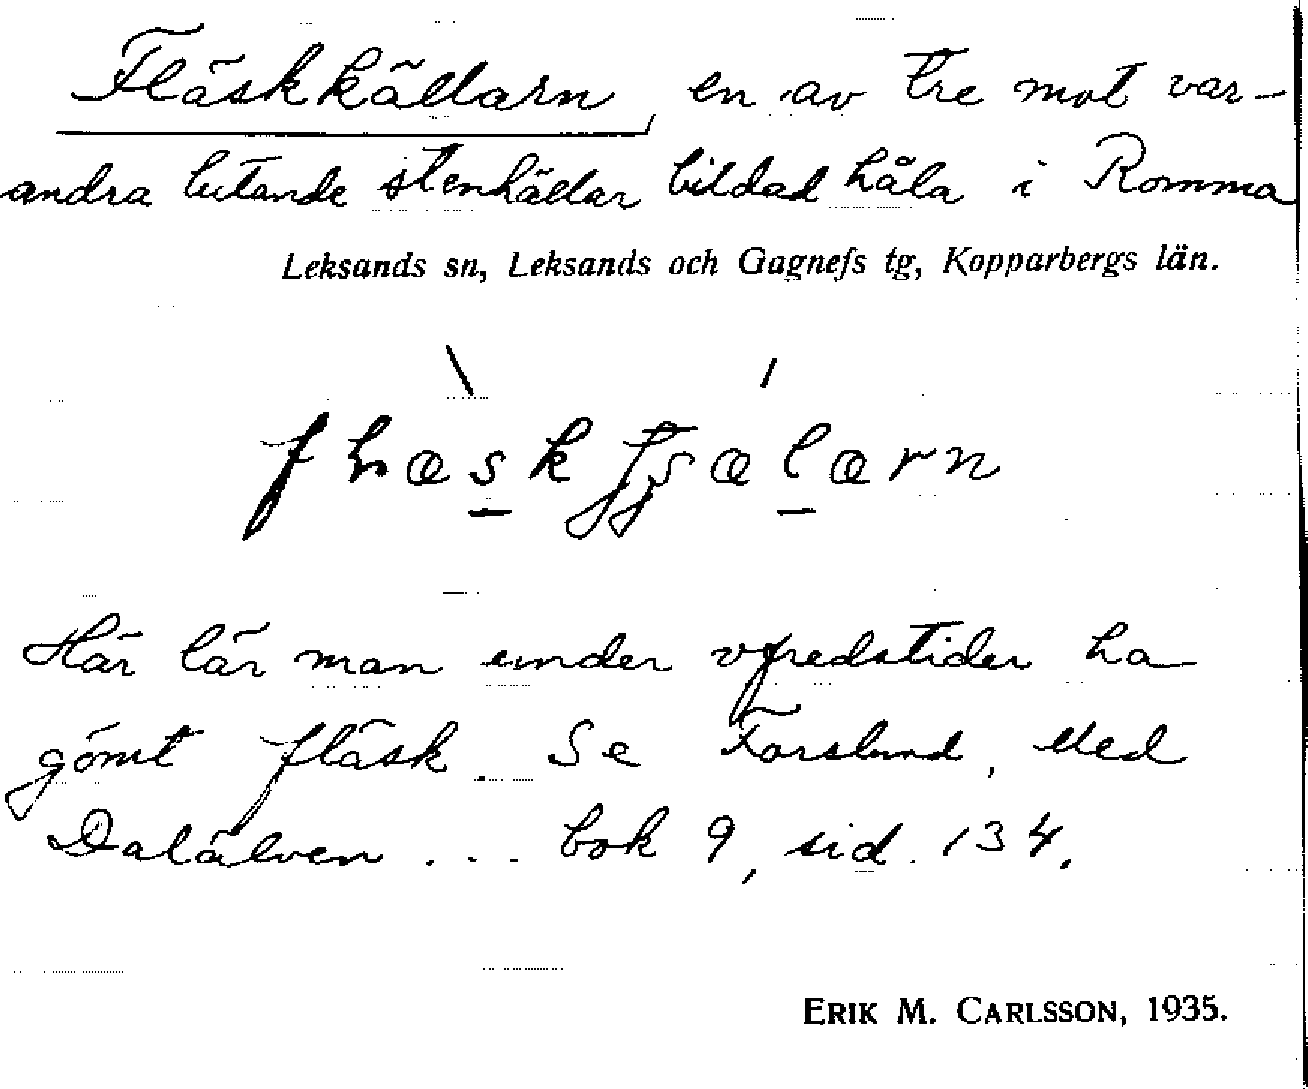 Fläskkällarn, en av tre mot var-
andra lutande stenhällar bildad håla i Romma
Leksands sn, Leksands och Gagnefs tg, Kopparbergs län.
Här lär man under ofredstider ha
gömt fläsk. Se Forslund, Med
Dalälven... bok 9, sid. 134.
ERIK M. CARLSSON, 1935.